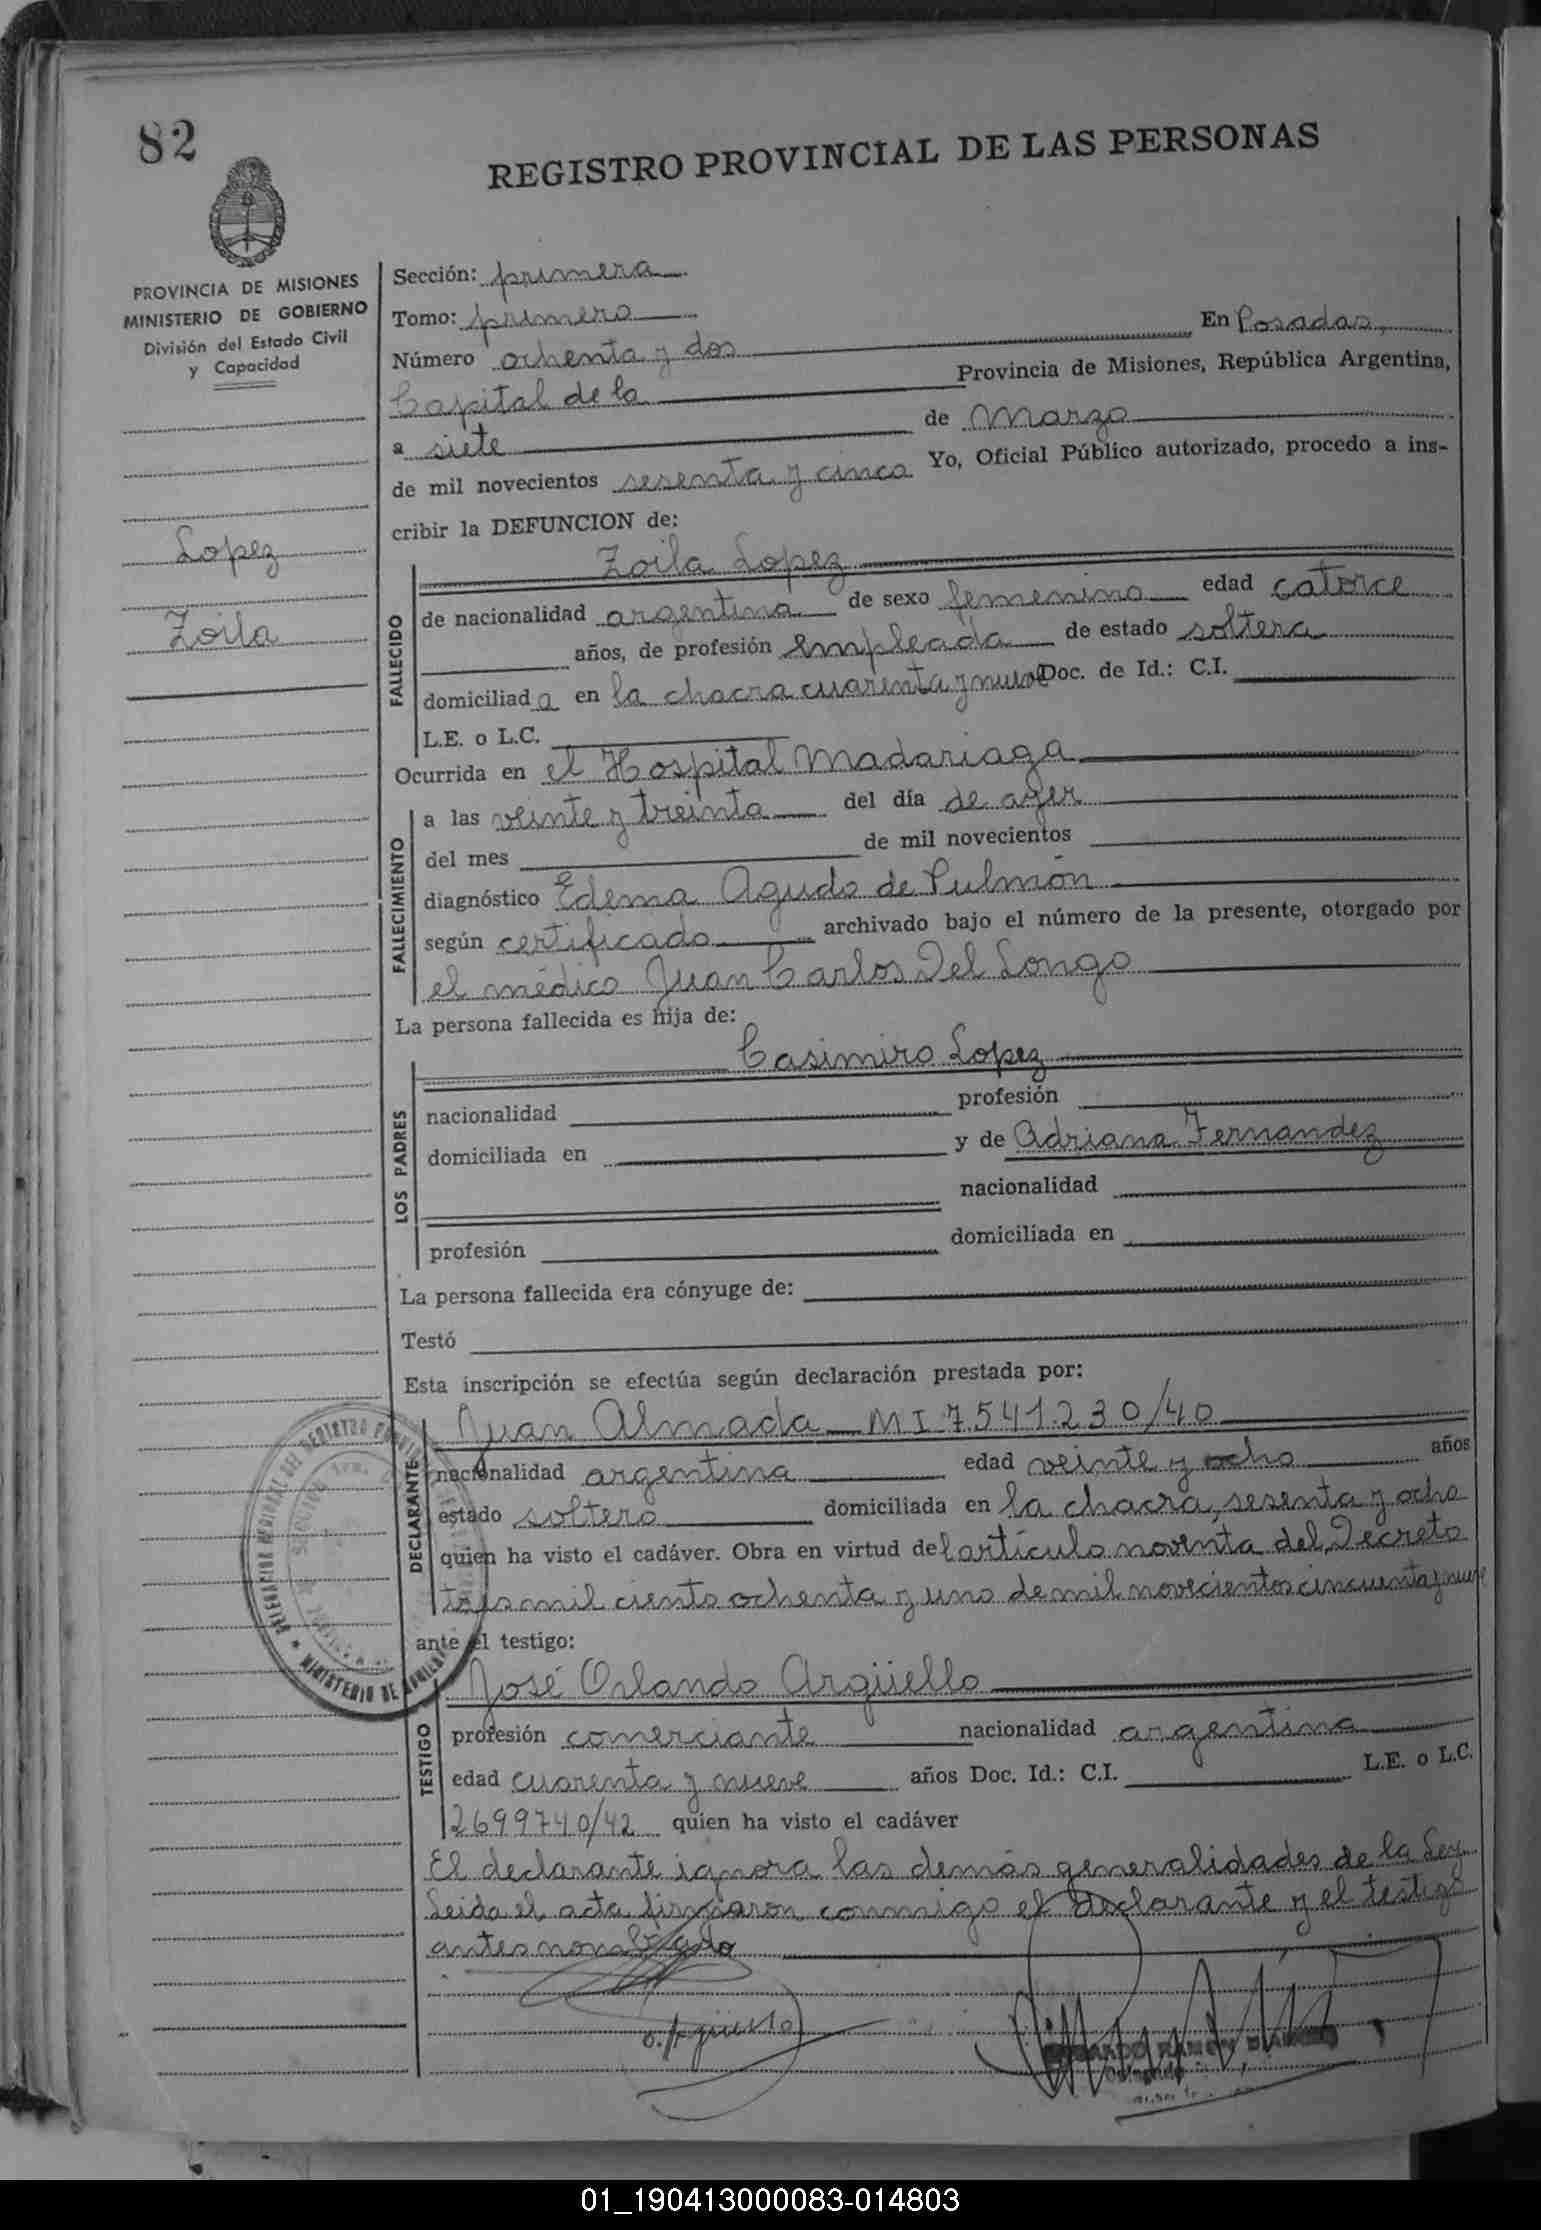 82
REGISTRO PROVINCIAL DE LAS PERSONAS
PROVINCIA DE MISIONES
MINISTERIO DE GOBIERNO
División del Estado Civil
y Capacidad
Lopez
Zoila
Sección: primera
Tomo: primero
Número ochenta y dos En Posadas,
Capital de la Provincia de Misiones, República Argentina,
a siete de Marzo
de mil novecientos sesenta y cinco Yo, Oficial Público autorizado, procedo a ins-
cribir la DEFUNCION de:
Zoila Lopez
FALLECIDO
de nacionalidad argentina de sexo femenino edad catorce
años, de profesión empleada de estado soltera
domiciliada en la chacra cuarenta y nueve Doc. de Id.: C.I.
L.E. o L.C.
Ocurrida en el Hospital Madariaga
FALLECIMIENTO
a las veinte y treinta del día de ayer
del mes de mil novecientos
diagnóstico Edema Agudo de Pulmón
según certificado archivado bajo el número de la presente, otorgado por
el médico Juan Carlos Del Longo
La persona fallecida es hija de:
Casimiro Lopez
LOS PADRES
nacionalidad profesión
domiciliada en y de Adriana Fernandez
nacionalidad
profesión domiciliada en
La persona fallecida era cónyuge de:
Testó
Esta inscripción se efectúa según declaración prestada por:
Juan Almada MI 7.541.230/40
DECLARANTE
nacionalidad argentina edad veinte y ocho años
estado soltero domiciliada en la chacra, sesenta y ocho
quien ha visto el cadáver. Obra en virtud del artículo noventa del Decreto
tres mil ciento ochenta y uno de mil novecientos cincuenta y nueve
ante el testigo:
José Orlando Argüello
TESTIGO
profesión comerciante nacionalidad argentina
edad cuarenta y nueve años Doc. Id.: C.I. L.E. o L.C.
2699740/42 quien ha visto el cadáver
El declarante ignora las demás generalidades de la Ley
Leida el acta firmaron conmigo el declarante y el testigo
antes nombrado
01_190413000083-014803